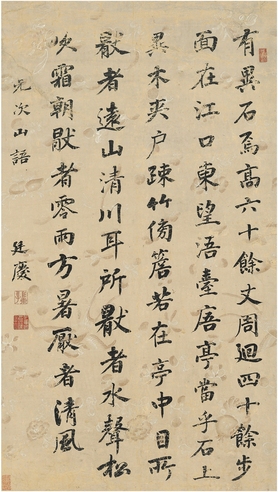 有異石焉高六十餘丈周迴四十餘步
面在江口東望浯臺亭當乎石上
異木夾户疎竹傍簷若在亭中目所
猒者遠山清川耳所猒者水聲松
吹霜朝猒者零雨方暑厭者清風
元次山語
廷慶